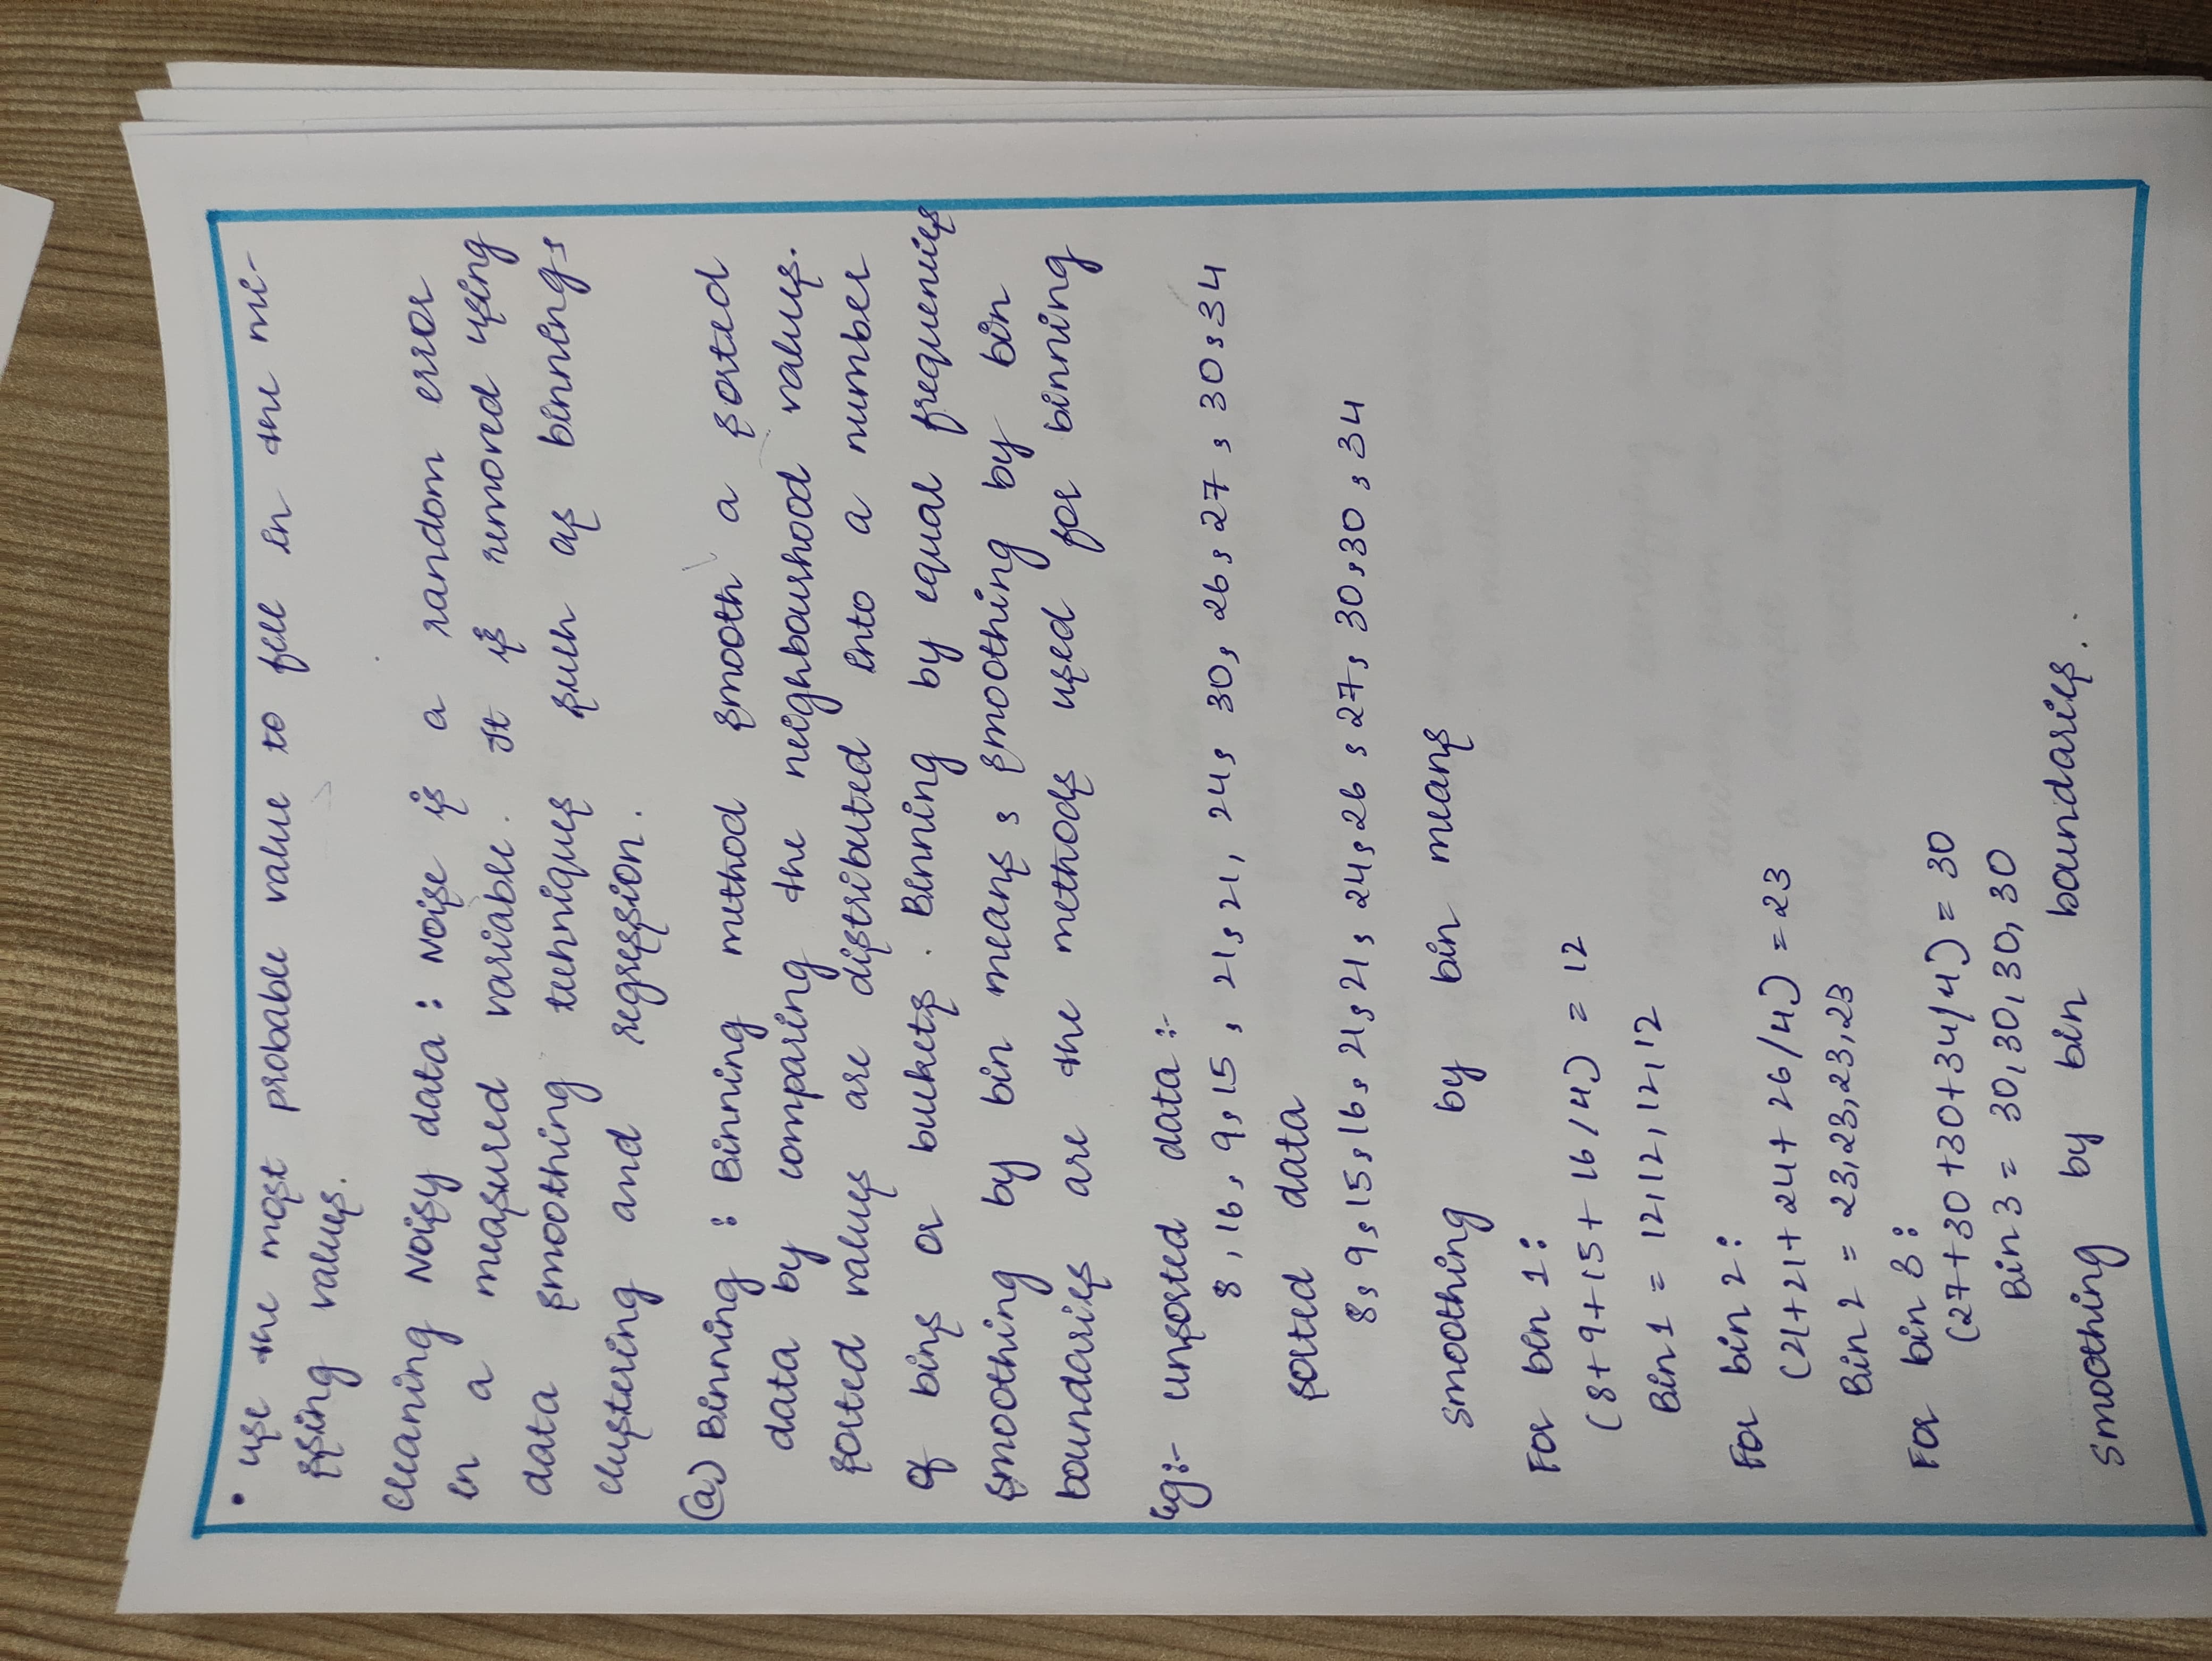 • use the most probable value to fill in the mi-
ssing values.
cleaning Noisy data : Noise is a random error
in a measured variable. It is removed using
data smoothing techniques such as binning,
clustering and regression.
(a) Binning : Binning method smooth a sorted
data by comparing the neighbourhood values.
sorted values are distributed into a number
of bins or buckets. Binning by equal frequencies
smoothing by bin means, smoothing by bin
boundaries are the methods used for binning
Eg:- unsorted data :-
8, 16, 9, 15, 21, 21, 24, 30, 26, 27, 30, 34
sorted data
8, 9, 15, 16, 21, 21, 24, 26, 27, 30, 30, 34
smoothing by bin means
For bin 1:
(8+9+15+16/4) = 12
Bin 1 = 12, 12, 12, 12
For bin 2:
(21+21+24+26/4) = 23
Bin 2 = 23, 23, 23, 23
For bin 3:
(27+30+30+34/4) = 30
Bin 3 = 30, 30, 30, 30
smoothing by bin boundaries.